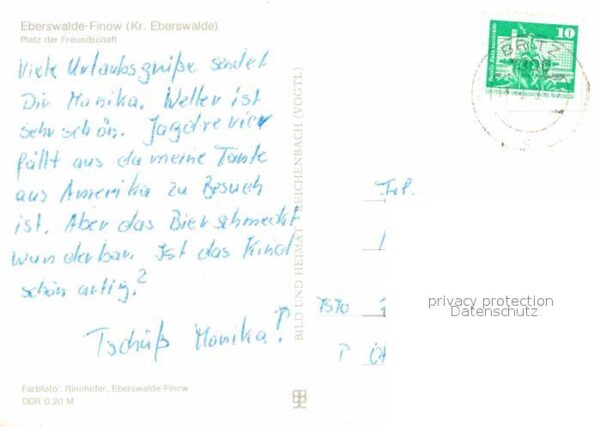 Eberswalde-Finow (Kr. Eberswalde)
Platz der Freundschaft
Viele Urlaubsgrüße sendet
Dir Monika. Wetter ist
sehr schön. Jagdrevier
fällt aus da meine Tante
aus Amerika zu Besuch
ist. Aber das Bier schmeckt
wunderbar. Ist das Kind
schön artig?
Tschüß Monika!
Farbfoto: Rinnhofer, Eberswalde-Finow
DDR 0,20 M
BILD UND HEIMAT REICHENBACH (VOGTL)
10
BRITZ
Frl.
7570
privacy protection
Datenschutz